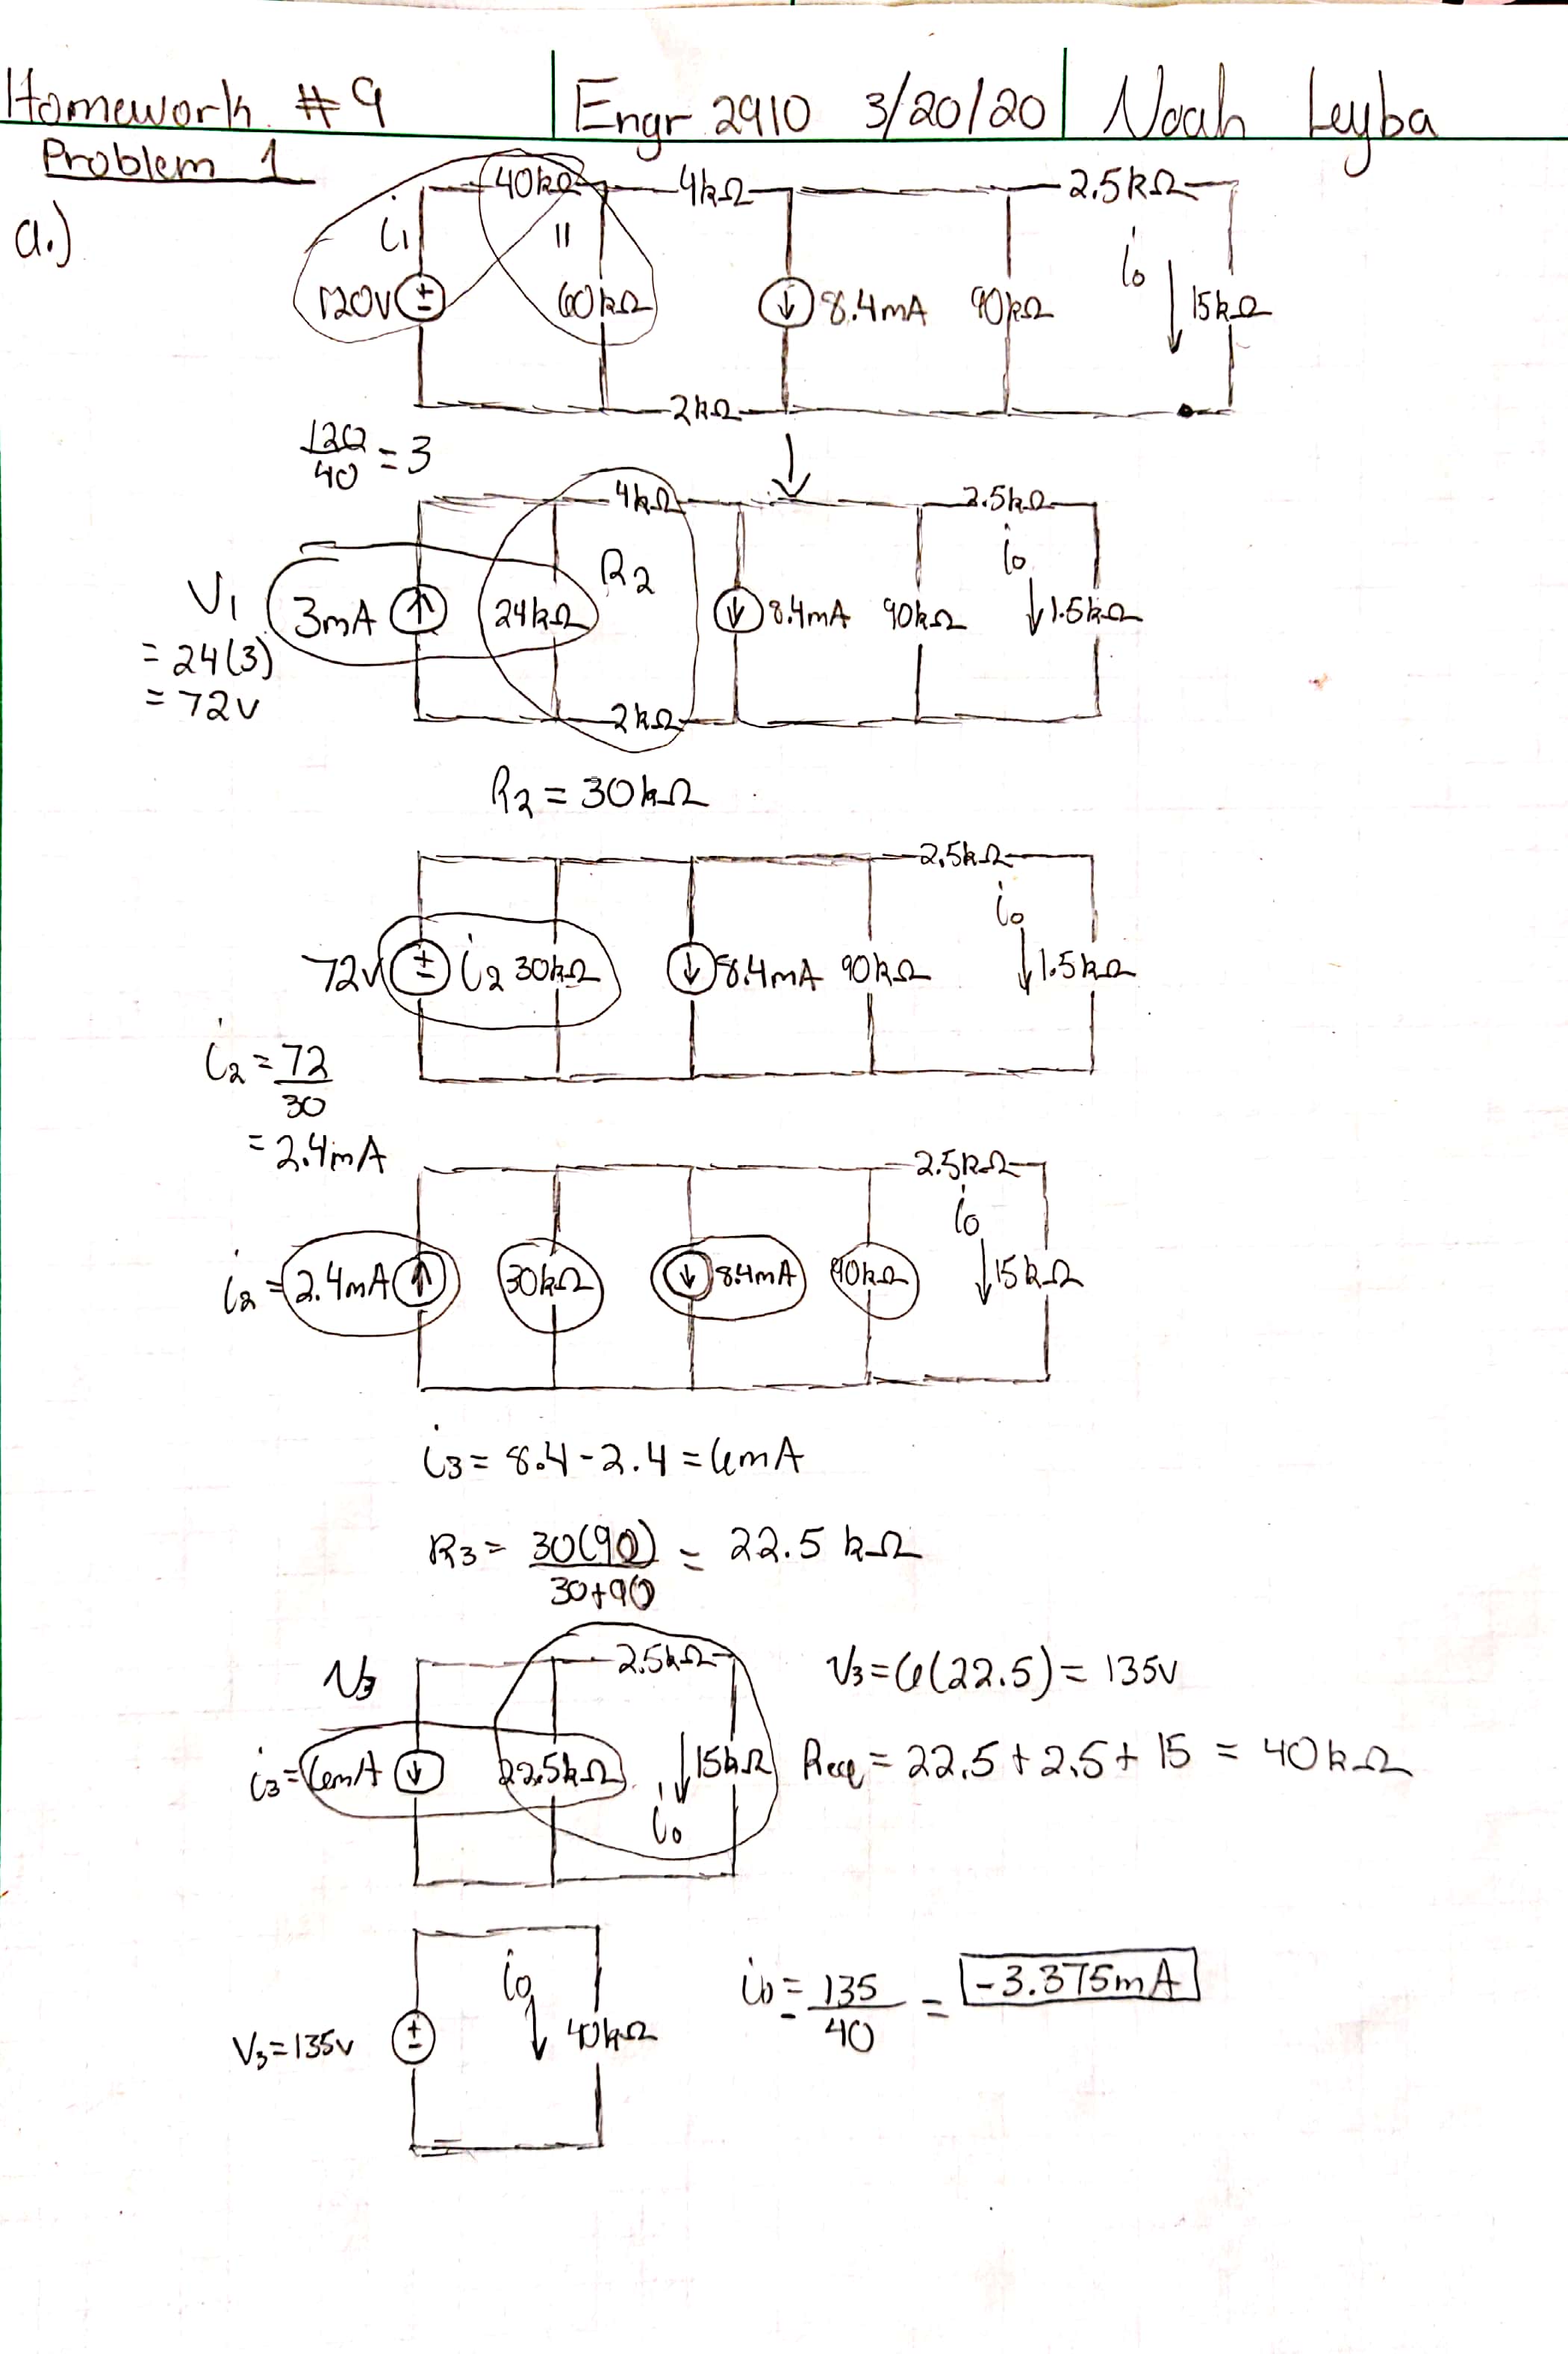 Homework #9 Engr 2910 3/20/20 Noah Leyba
Problem 1
a.)
40kΩ 4kΩ 2.5kΩ
i₁ || i₀
120V + - 60kΩ ↓ 8.4mA 90kΩ ↓ 15kΩ
2kΩ
120/40 = 3 ↓
4kΩ 2.5kΩ
R₂ i₀
V₁ 3mA ↑ 24kΩ ↓ 8.4mA 90kΩ ↓ 1.5kΩ
= 24(3)
= 72V
2kΩ
R₂ = 30kΩ
2.5kΩ
i₀
72V + - i₂ 30kΩ ↓ 8.4mA 90kΩ ↓ 1.5kΩ
i₂ = 72/30
= 2.4mA
2.5kΩ
i₀
i₂ = 2.4mA ↑ 30kΩ ↓ 8.4mA 90kΩ ↓ 15kΩ
i₃ = 8.4 - 2.4 = 6mA
R₃ = 30(90)/30+90 = 22.5 kΩ
V₃ 2.5kΩ V₃ = 6(22.5) = 135V
i₃ = 6mA ↓ 22.5kΩ ↓ 15kΩ Req = 22.5 + 2.5 + 15 = 40kΩ
i₀
i₀ i₀ = 135/40 = -3.375mA
V₃ = 135V + - ↓ 40kΩ